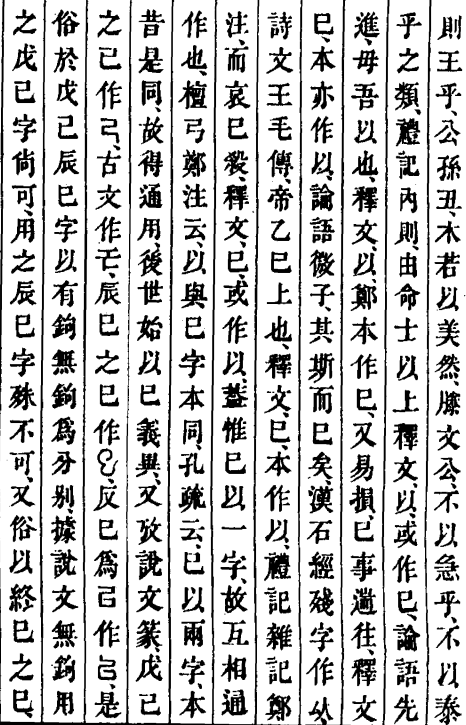 則王乎、公孫丑、木若以美然、滕文公、不以急乎、不以泰
乎之類、禮記內則、由命士以上釋文、以、或作巳、論語先
進、毋吾以也、釋文、以、鄭本作巳、又易損、巳事遄往、釋文
巳、本亦作以、論語微子、其斯而巳矣、漢石經殘字作㕥
詩文王毛傳、帝乙巳上也、釋文、巳、本作以、禮記雜記鄭
注、而哀巳殺、釋文、巳、或作以、蓋惟巳以一字、故互相通
作也、檀弓鄭注云、以與巳字本同、孔疏云、巳以兩字、本
昔是同、故得通用、後世始以巳義異、又攷說文篆、戊己
之己作𢀒、古文作𢀒、辰巳之巳作𢀳、反巳爲㠯作㠯、是
俗於戊己辰巳字以有鉤無鉤爲分别、據說文無鉤用
之戊己字尙可、用之辰巳字殊不可、又俗以終巳之巳